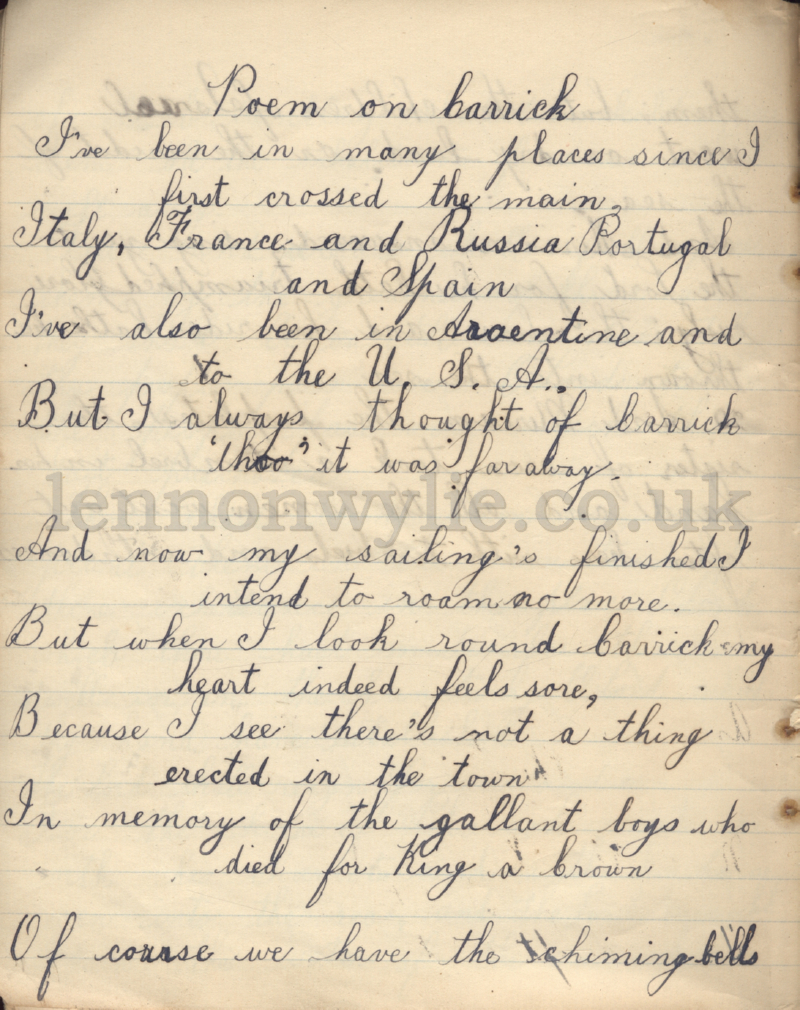 Poem on Carrick
I've been in many places since I
first crossed the main,
Italy, France and Russia Portugal
and Spain
I've also been in Argentine and
to the U. S. A..
But I always thought of Carrick
'thoo' it was far away.
lennonwylie.co.uk
And now my sailing's finished I
intend to roam no more.
But when I look round Carrick my
heart indeed feels sore,
Because I see there's not a thing
erected in the town
In memory of the gallant boys who
died for King a crown
Of course we have the chiming bells